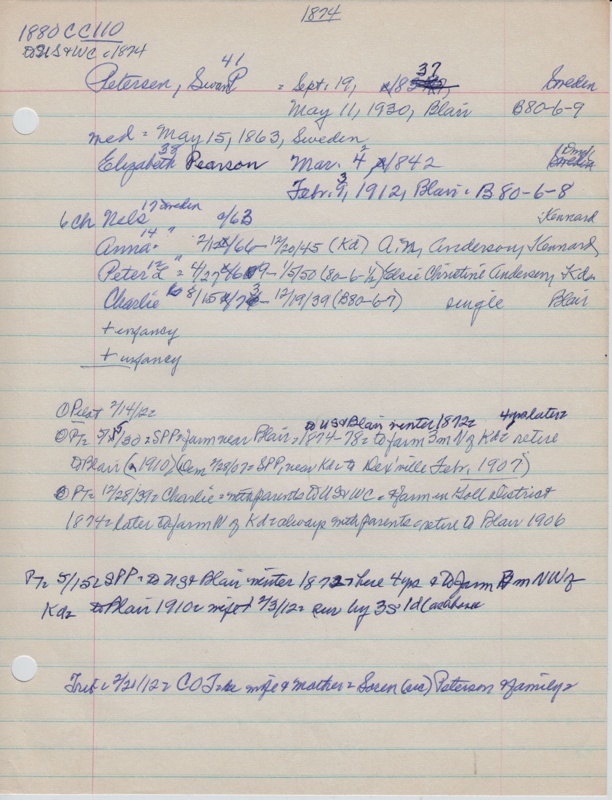 1874
1880 CC 110
to US & WC = 1874
41
Petersen, Swan P = Sept. 19, 1837 Sweden
May 11, 1930, Blair B80-6-9
med = May 15, 1863, Sweden
38
Elizabeth Pearson Mar. 4, 1842 Sweden
Febr. 3, 1912, Blair = B80-6-8
6 ch Nels 17 Sweden /63 Kennard
Anna 14 " /66 - 12/20/45 (Kd) A.N. Anderson, Kennard
Peter L 12 " = 4/27/69 - 1/5/50 (80-6-½) Elsie Christine Anderson, Kd.
Charlie 8/15/73 - 12/19/39 (B80-6-7) single Blair
+ infancy
+ infancy
① Pilot 2/14/12 =
to US & Blair winter 1872 = 4 yrs later =
② PT = 5/15/30 = SPP = farm near Blair = 1874-78 = to farm 3 m N of Kd = retire
to Blair (1910) (Dem 2/28/07 = SPP, near Kd = to Dex'ville Febr. 1907)
③ PT = 12/28/39 = Charlie = with parents to US & WC = farm in Goll District
1874 = later to farm N of Kd = always with parents = retire to Blair 1906
PT = 5/15 = SPP = to US & Blair winter 1872 = here 4 yrs & to farm 3 m NW of
Kd = to Blair 1910 = wife + 2/3/12 = sur by 3s 1d
Trib = 2/21/12 = COT = wife & mother = Soren (sic) Peterson & family =